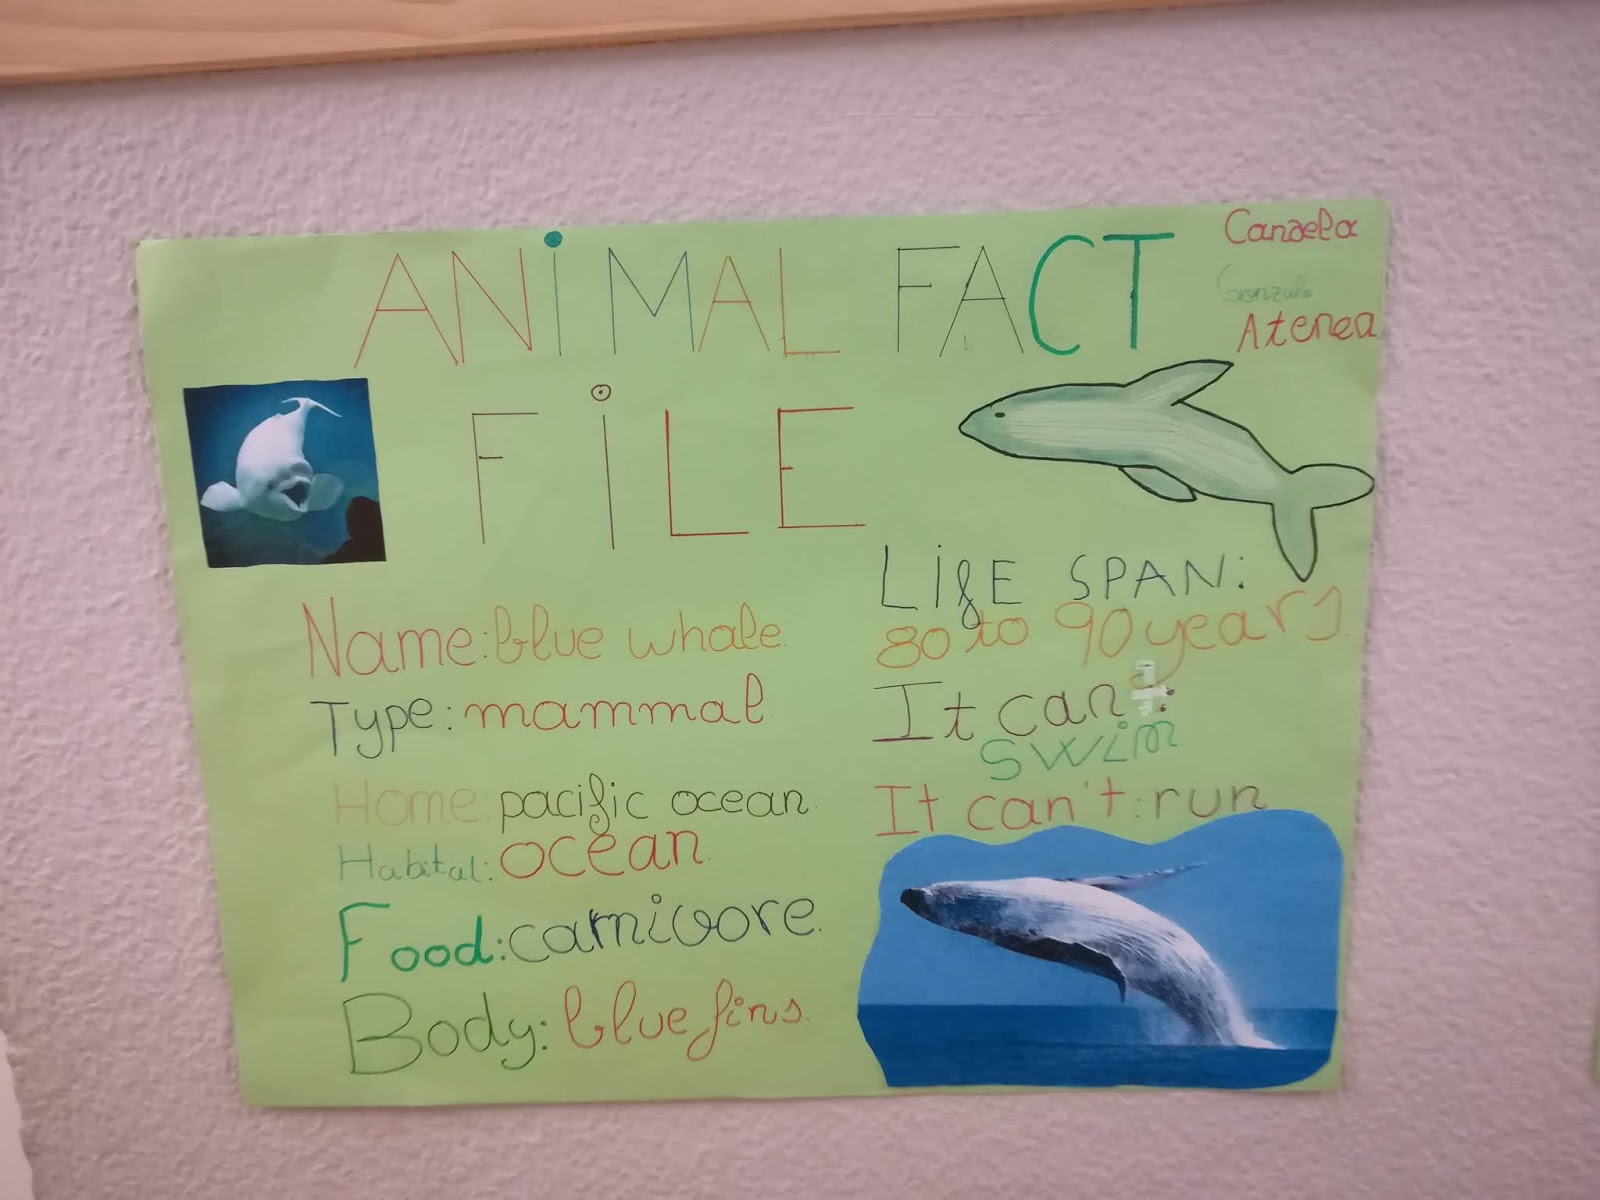 ANiMAL FACT
FiLE
Candela
Gonzalo
Atenea
Name: blue whale.
Type: mammal.
Home: pacific ocean.
Habital: ocean.
Food: carnivore.
Body: blue fins.
LifE SPAN:
80 to 90 years.
It can:
swim
It can't: run